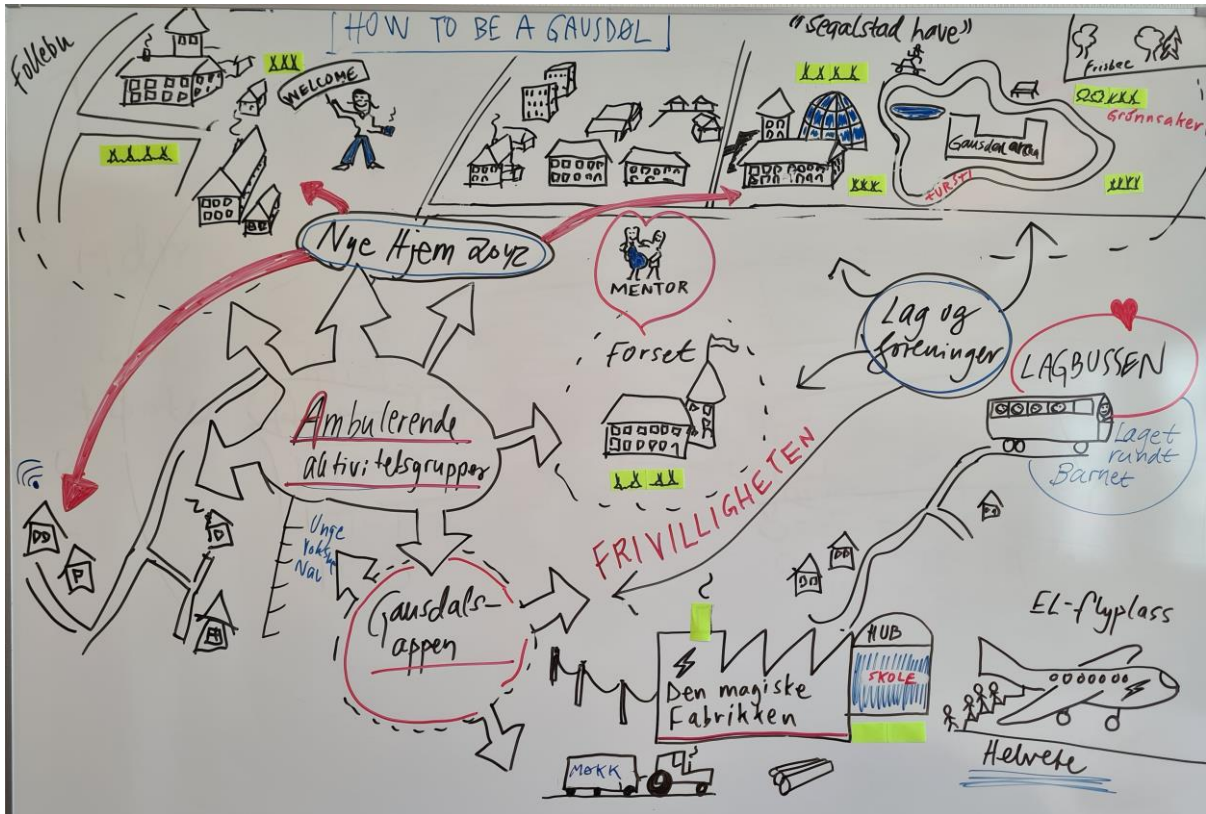 HOW TO BE A GAUSDØL
Follebu
WELCOME
"Segalstad have"
Frisbee
Grønnsaker
Gausdal arena
TURSTI
Nye Hjem 2042
MENTOR
Forset
Lag og
foreninger
LAGBUSSEN
Laget
rundt
Barnet
Ambulerende
aktivitetsgrupper
Unge
Voksne
Nav
P
FRIVILLIGHETEN
Gausdals-
appen
Den magiske
Fabrikken
HUB
SKOLE
MØKK
EL-flyplass
Helvete